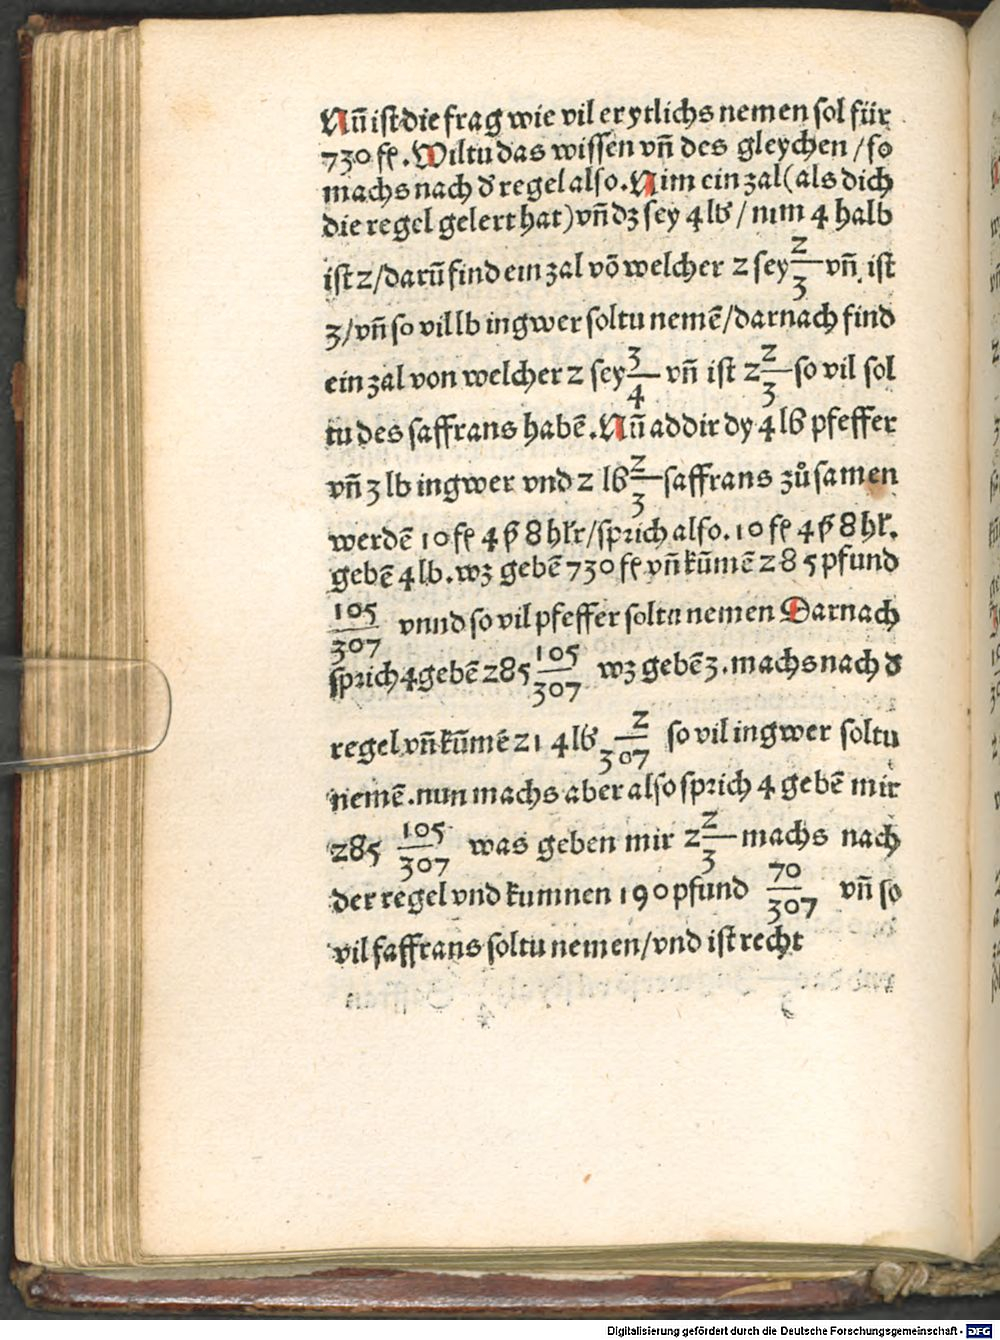 Nuñ ist die frag wie vil er ytlichs nemen sol für
730 fl. Wiltu das wissen vñ des gleychen / so
machs nach d' regel also. Nim ein zal (als dich
die regel gelert hat) vñ dz sey 4 lb / nim 4 halb
ist 2 / darũ find ein zal võ welcher 2 sey 2/3 vñ ist
3 / vñ so vil lb ingwer soltu nemẽ / darnach find
ein zal von welcher 2 sey 3/4 vñ ist 2 2/3 so vil sol
tu des saffrans habẽ. Nũ addir dy 4 lb pfeffer
vñ 3 lb ingwer vnd 2 lb 2/3 saffrans zůsamen
werdẽ 10 fl 4 ß 8 hlr / sprich also. 10 fl 4 ß 8 hlr.
gebẽ 4 lb. wz gebẽ 730 fl vñ kũmẽ 285 pfund
105/307 vnnd so vil pfeffer soltu nemen Darnach
sprich 4 gebẽ 285 105/307 wz gebẽ 3. machs nach d'
regel vñ kũmẽ 214 lb 2/307 so vil ingwer soltu
nemẽ. nun machs aber also sprich 4 gebẽ mir
285 105/307 was geben mir 2 2/3 machs nach
der regel vnd kumnen 190 pfund 70/307 vñ so
vil saffrans soltu nemen / vnd ist recht
Digitalisierung gefördert durch die Deutsche Forschungsgemeinschaft - DFG